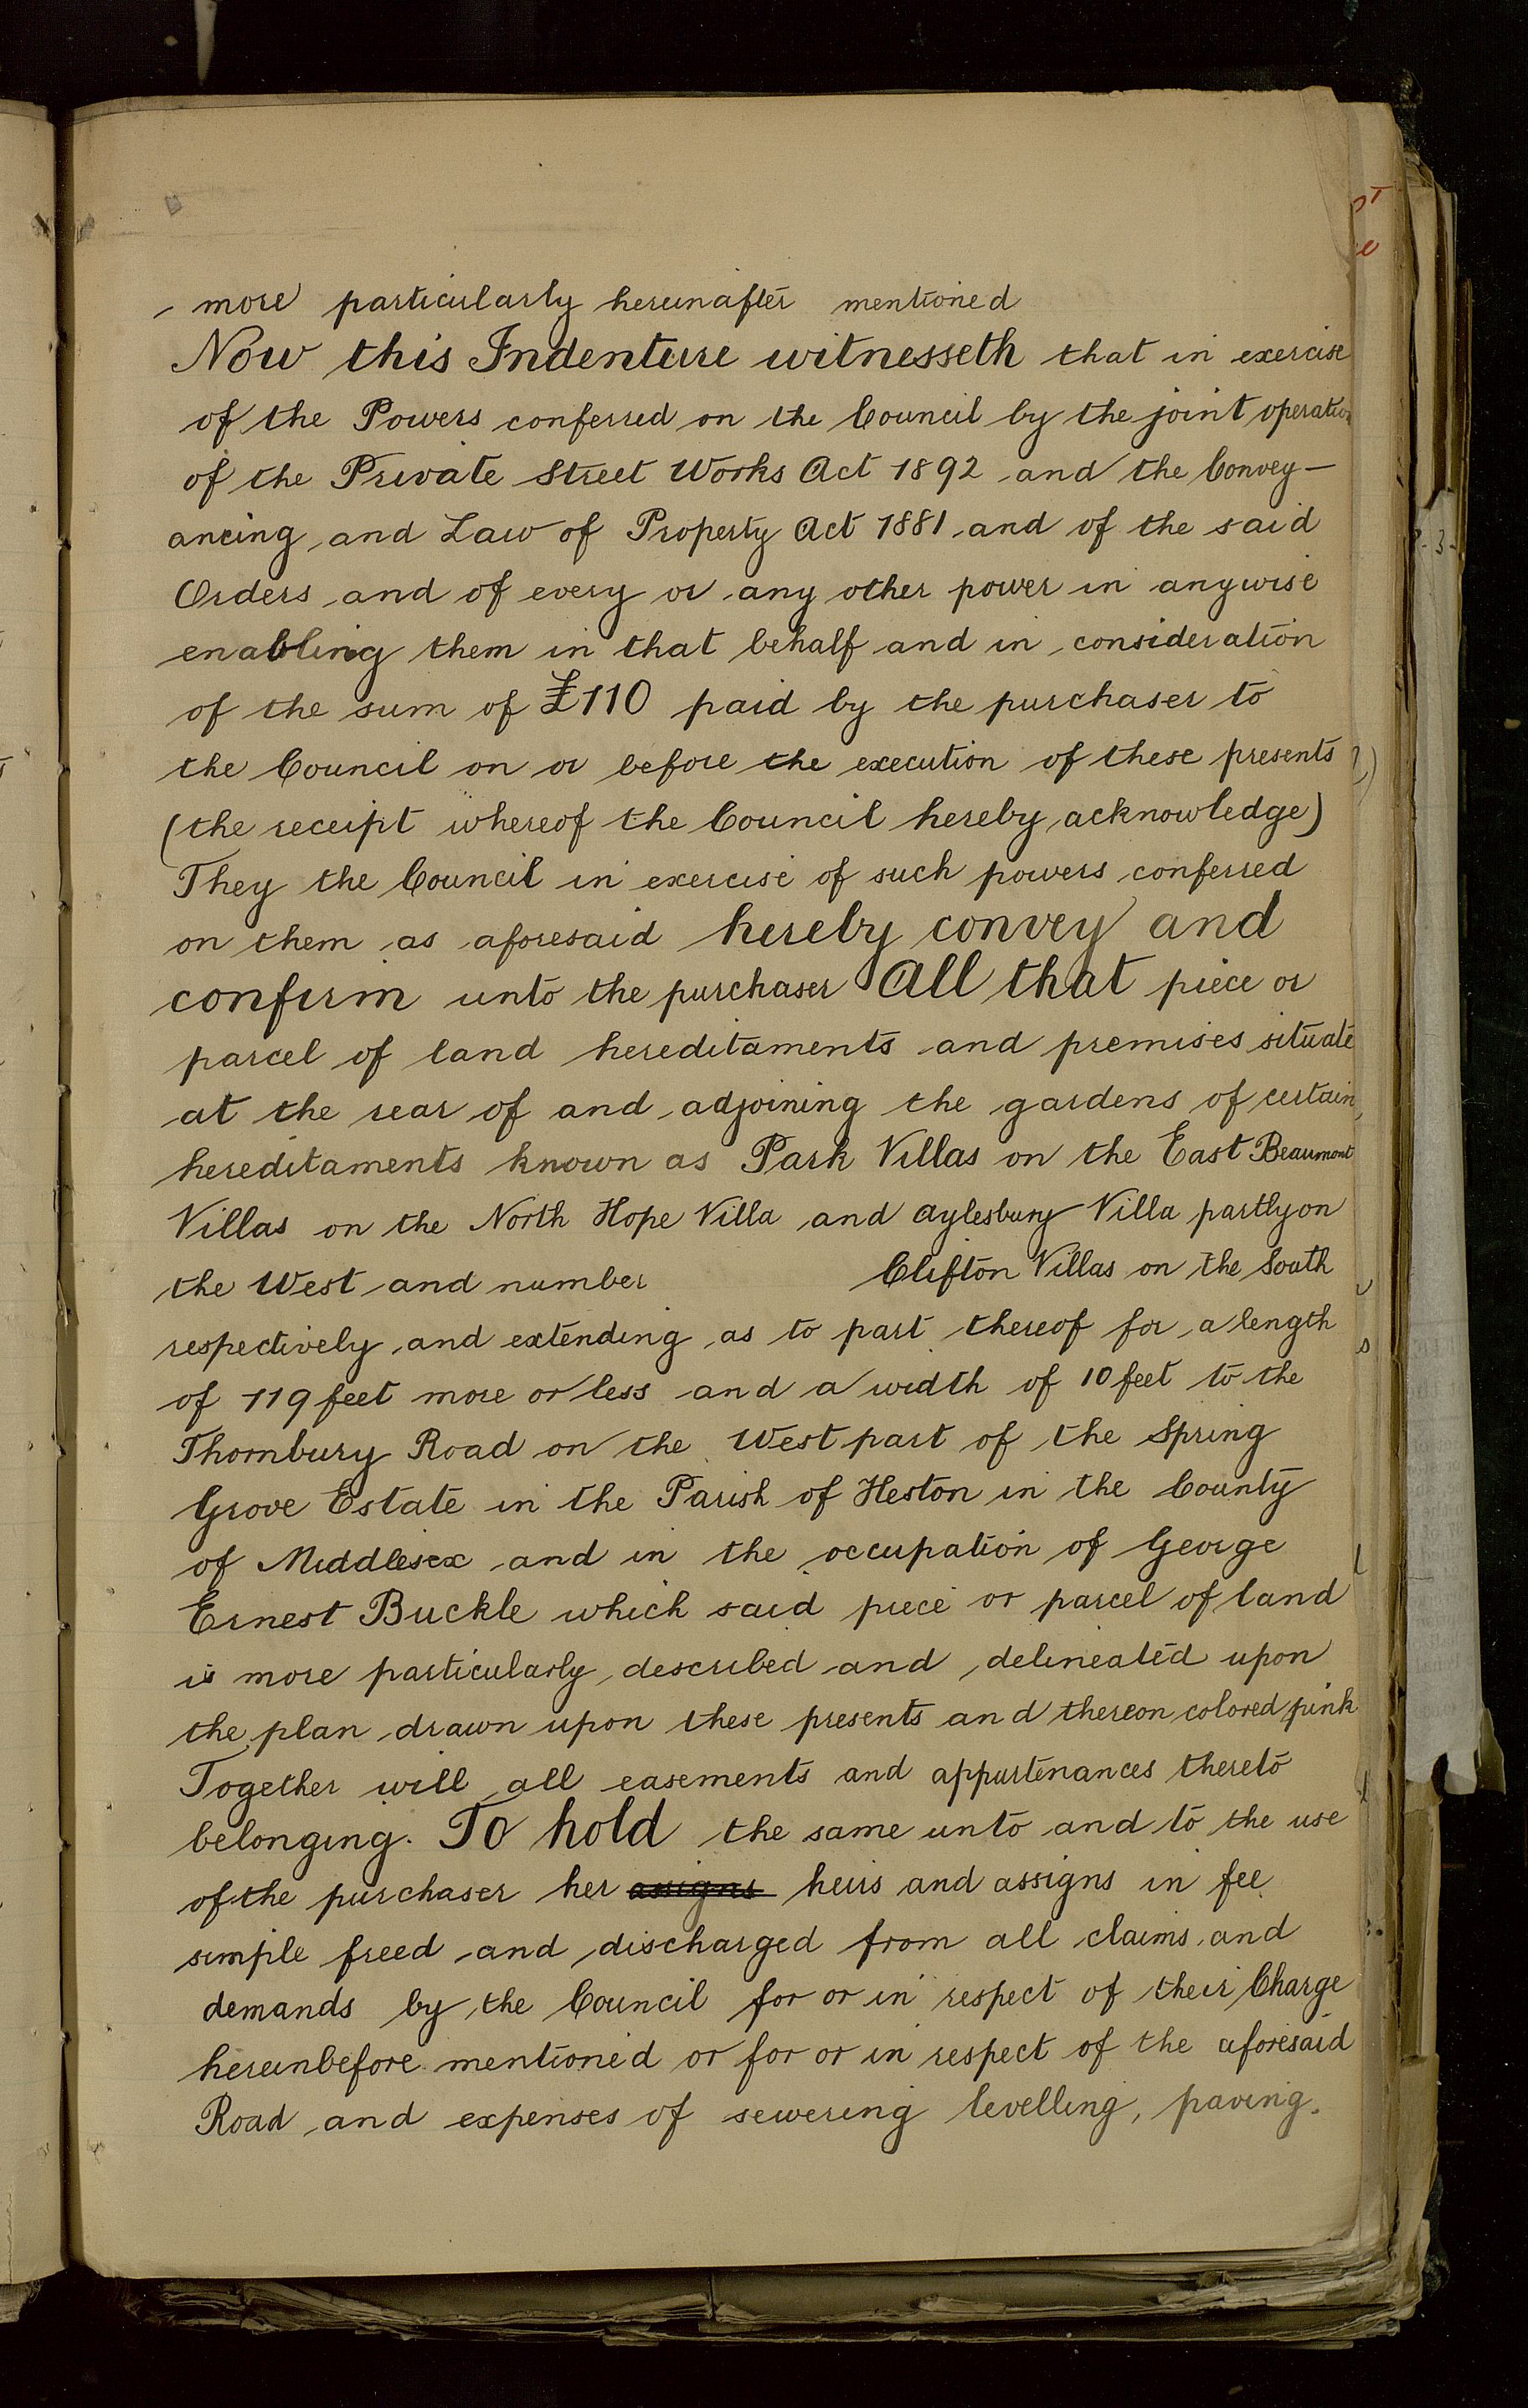 more particularly hereinafter mentioned
Now this Indenture witnesseth that in exercise
of the Powers conferred on the Council by the joint operation
of the Private Street Works Act 1892 and the Convey-
ancing and Law of Property Act 1881 and of the said
Orders and of every or any other power in anywise
enabling them in that behalf and in consideration
of the sum of £110 paid by the purchaser to
the Council on or before the execution of these presents
(the receipt whereof the Council hereby acknowledge)
They the Council in exercise of such powers conferred
on them as aforesaid hereby convey and
confirm unto the purchaser All that piece or
parcel of land hereditaments and premises situate
at the rear of and adjoining the gardens of certain
hereditaments known as Park Villas on the East Beaumont
Villas on the North Hope Villa and Aylesbury Villa partly on
the West and number Clifton Villas on the South
respectively and extending as to part thereof for a length
of 119 feet more or less and a width of 10 feet to the
Thornbury Road on the West part of the Spring
Grove Estate in the Parish of Heston in the County
of Middlesex and in the occupation of George
Ernest Buckle which said piece or parcel of land
is more particularly described and delineated upon
the plan drawn upon these presents and thereon colored pink
Together will all easements and appurtenances thereto
belonging. To hold the same unto and to the use
of the purchaser her assigns heirs and assigns in fee
simple freed and discharged from all claims and
demands by the Council for or in respect of their Charge
hereinbefore mentioned or for or in respect of the aforesaid
Road and expenses of sewering levelling, paving.